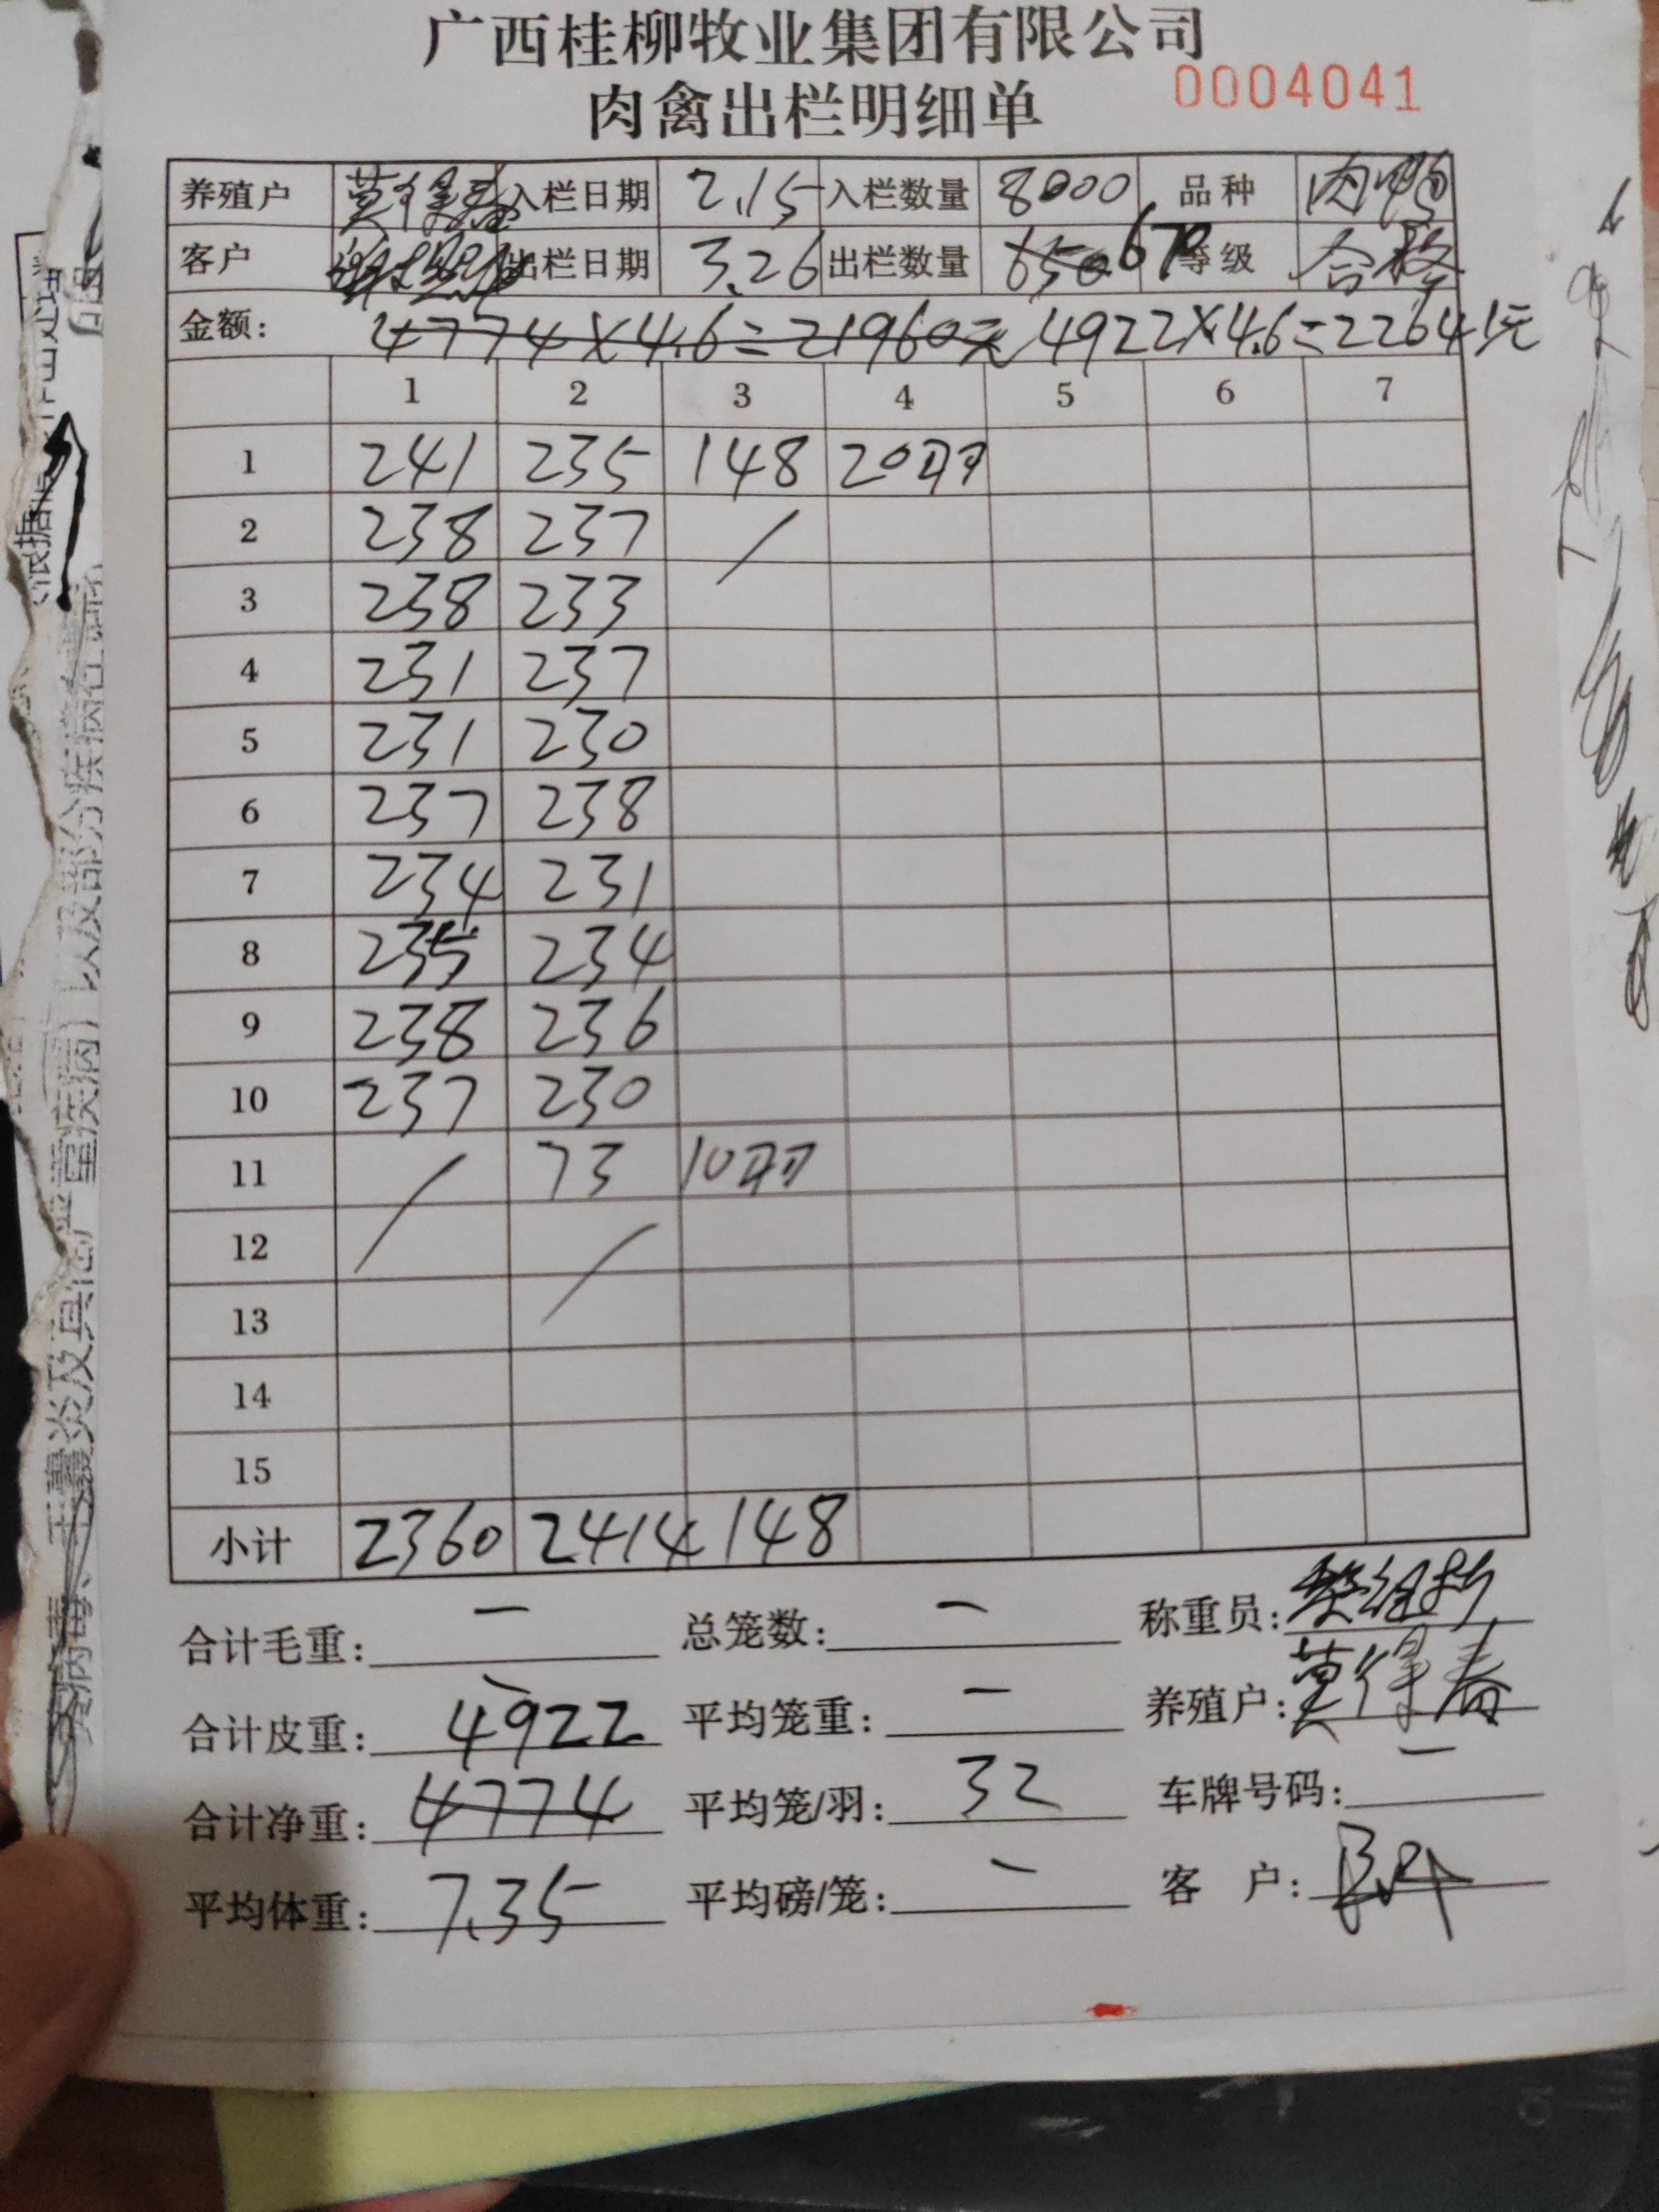 广西桂柳牧业集团有限公司
肉禽出栏明细单 0004041
养殖户 莫绿春 入栏日期 2.15 入栏数量 8000 品种 肉鸭
客户 出栏日期 3.26 出栏数量 650 670 等级 合格
金额: 4774×4.6=21960元 4922×4.6=22641元
1 2 3 4 5 6 7
1 241 235 148 20羽
2 238 237 /
3 238 233
4 231 237
5 231 230
6 237 238
7 234 231
8 235 234
9 238 236
10 237 230
11 / 73 10羽
12 /
13
14
15
小计 2360 2414 148
合计毛重: 一 总笼数: 一 称重员:
合计皮重: 4922 平均笼重: 一 养殖户: 莫绿春
合计净重: 4774 平均笼/羽: 32 车牌号码: 一
平均体重: 7.35 平均磅/笼: 一 客 户: